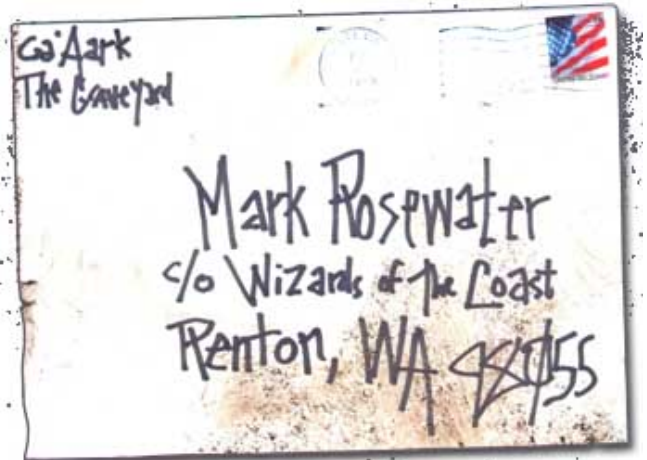 Ga'Aark
The Graveyard
Mark Rosewater
c/o Wizards of The Coast
Renton, WA 98055